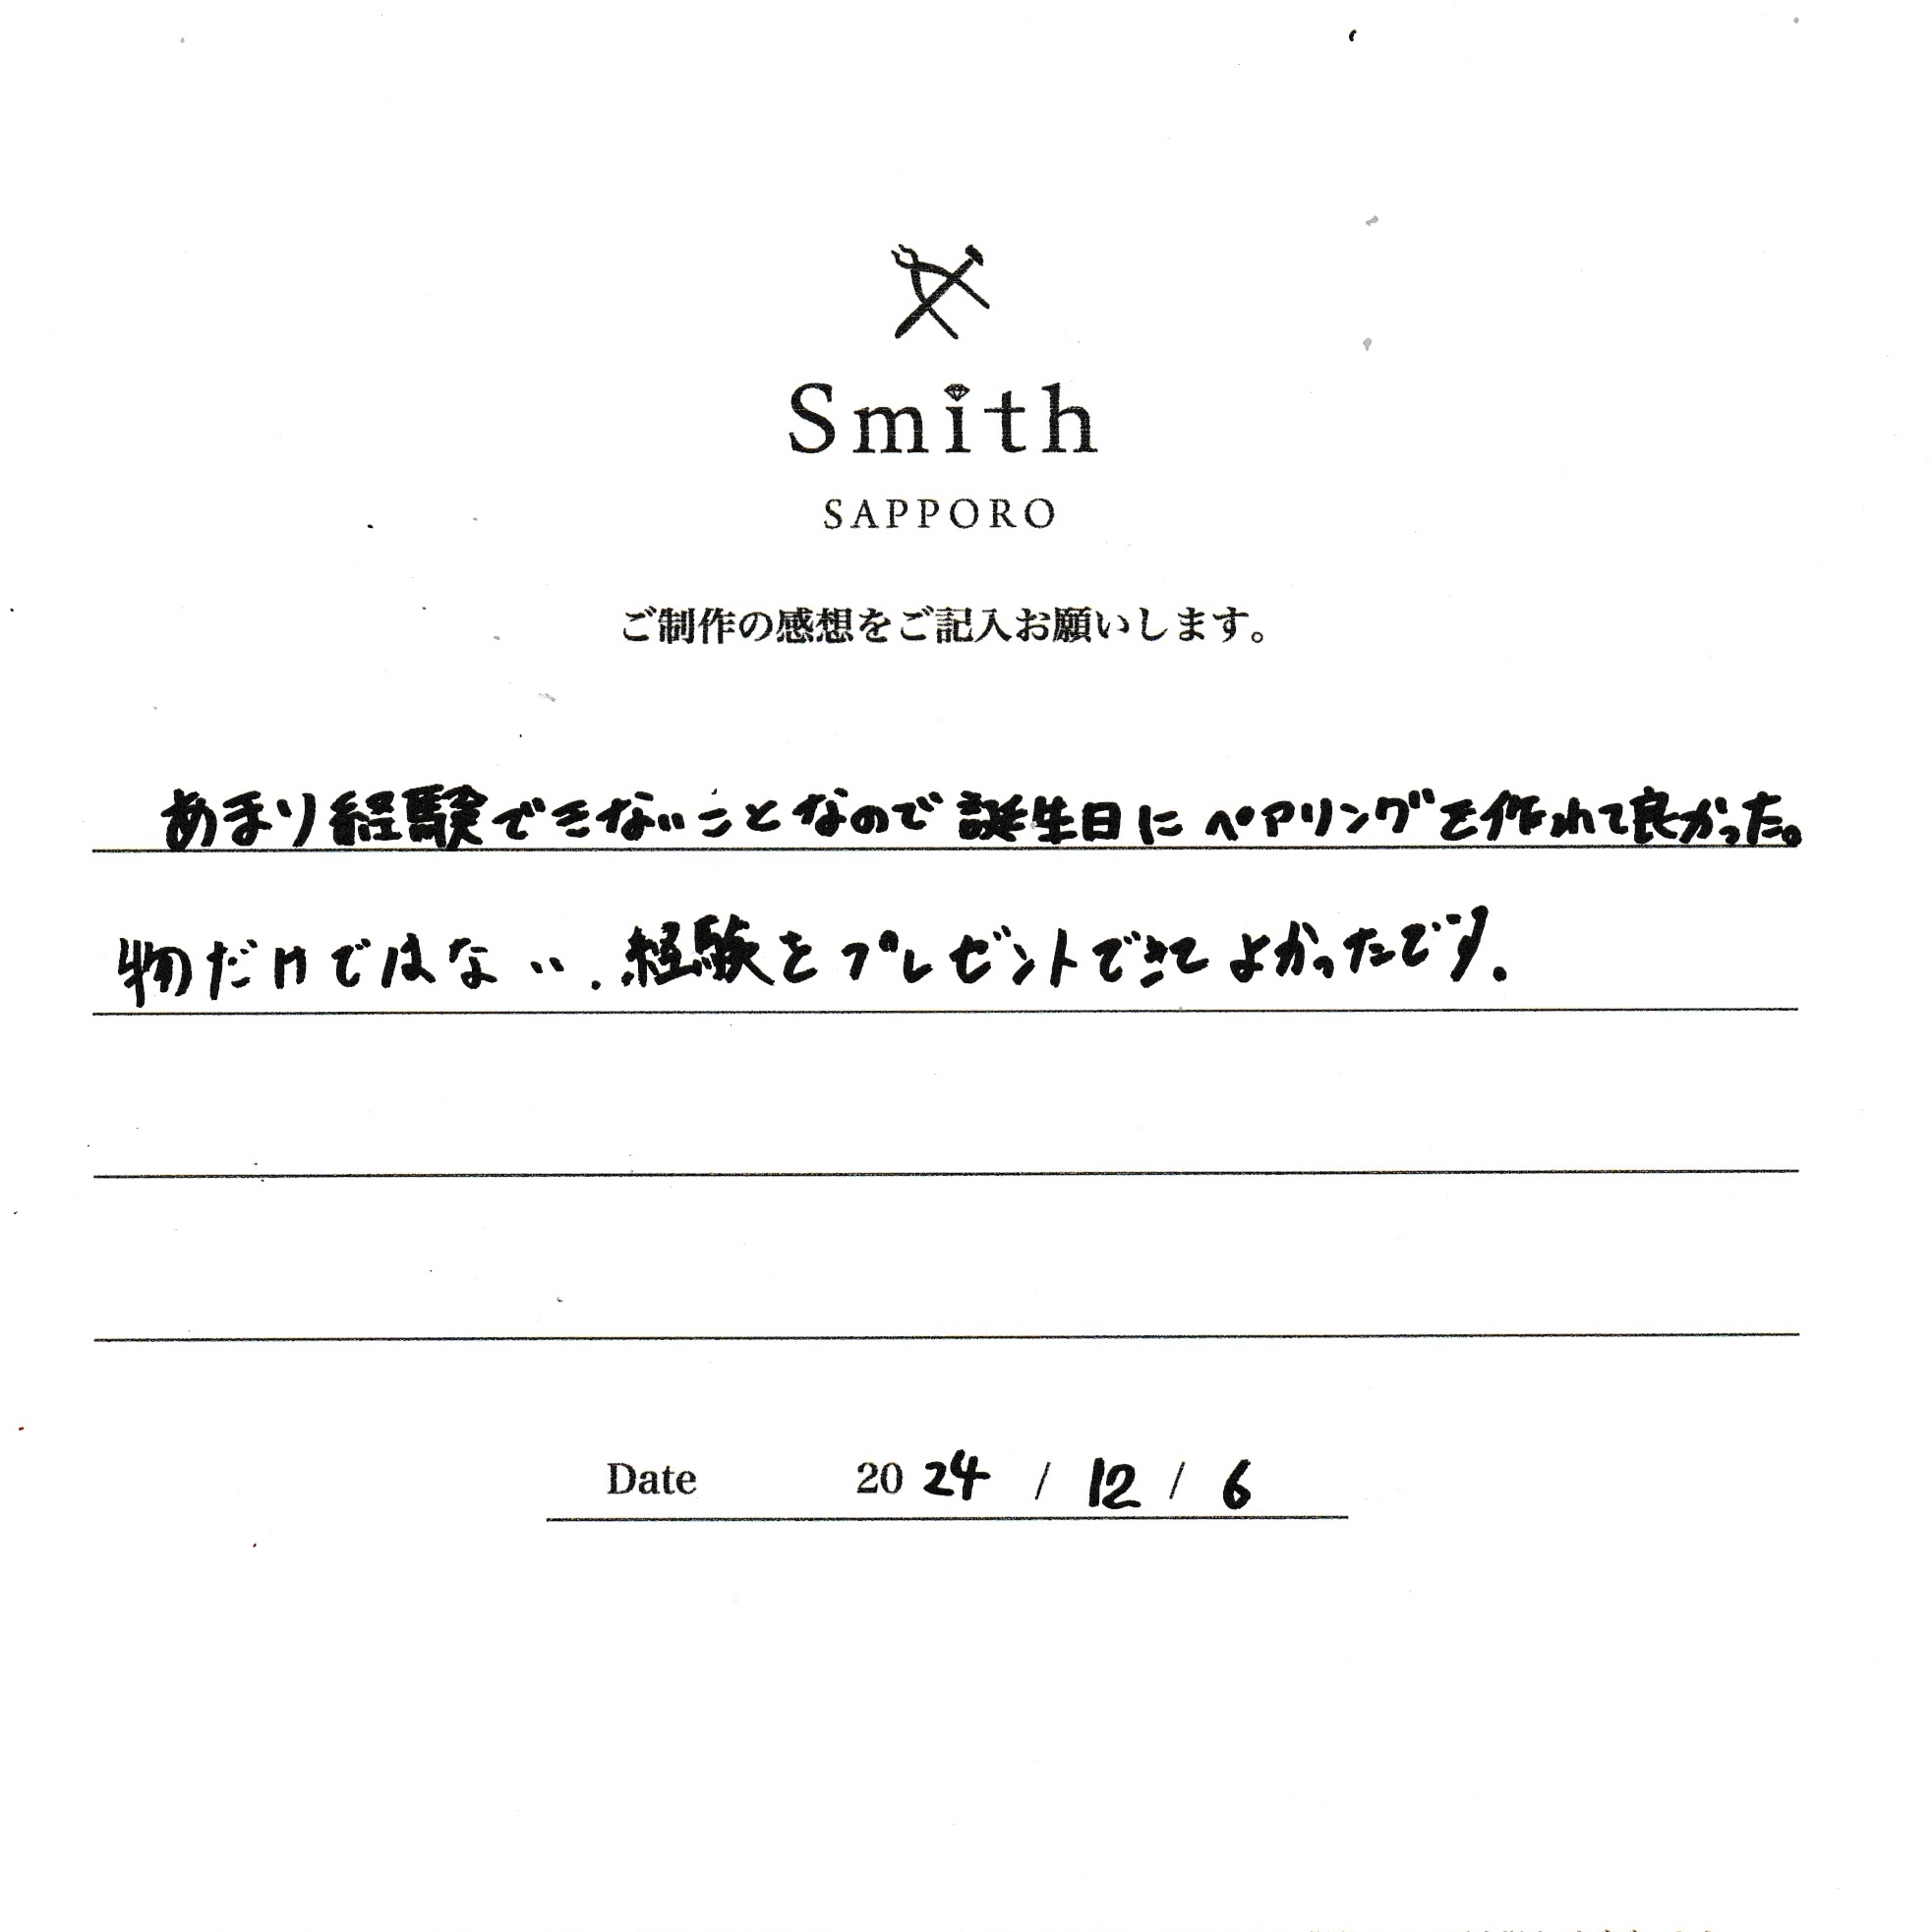 Smith
SAPPORO
ご制作の感想をご記入お願いします。
あまり経験できないことなので誕生日にペアリングを作れて良かった。
物だけではない.経験をプレゼントできてよかったです.
Date 2024 / 12 / 6